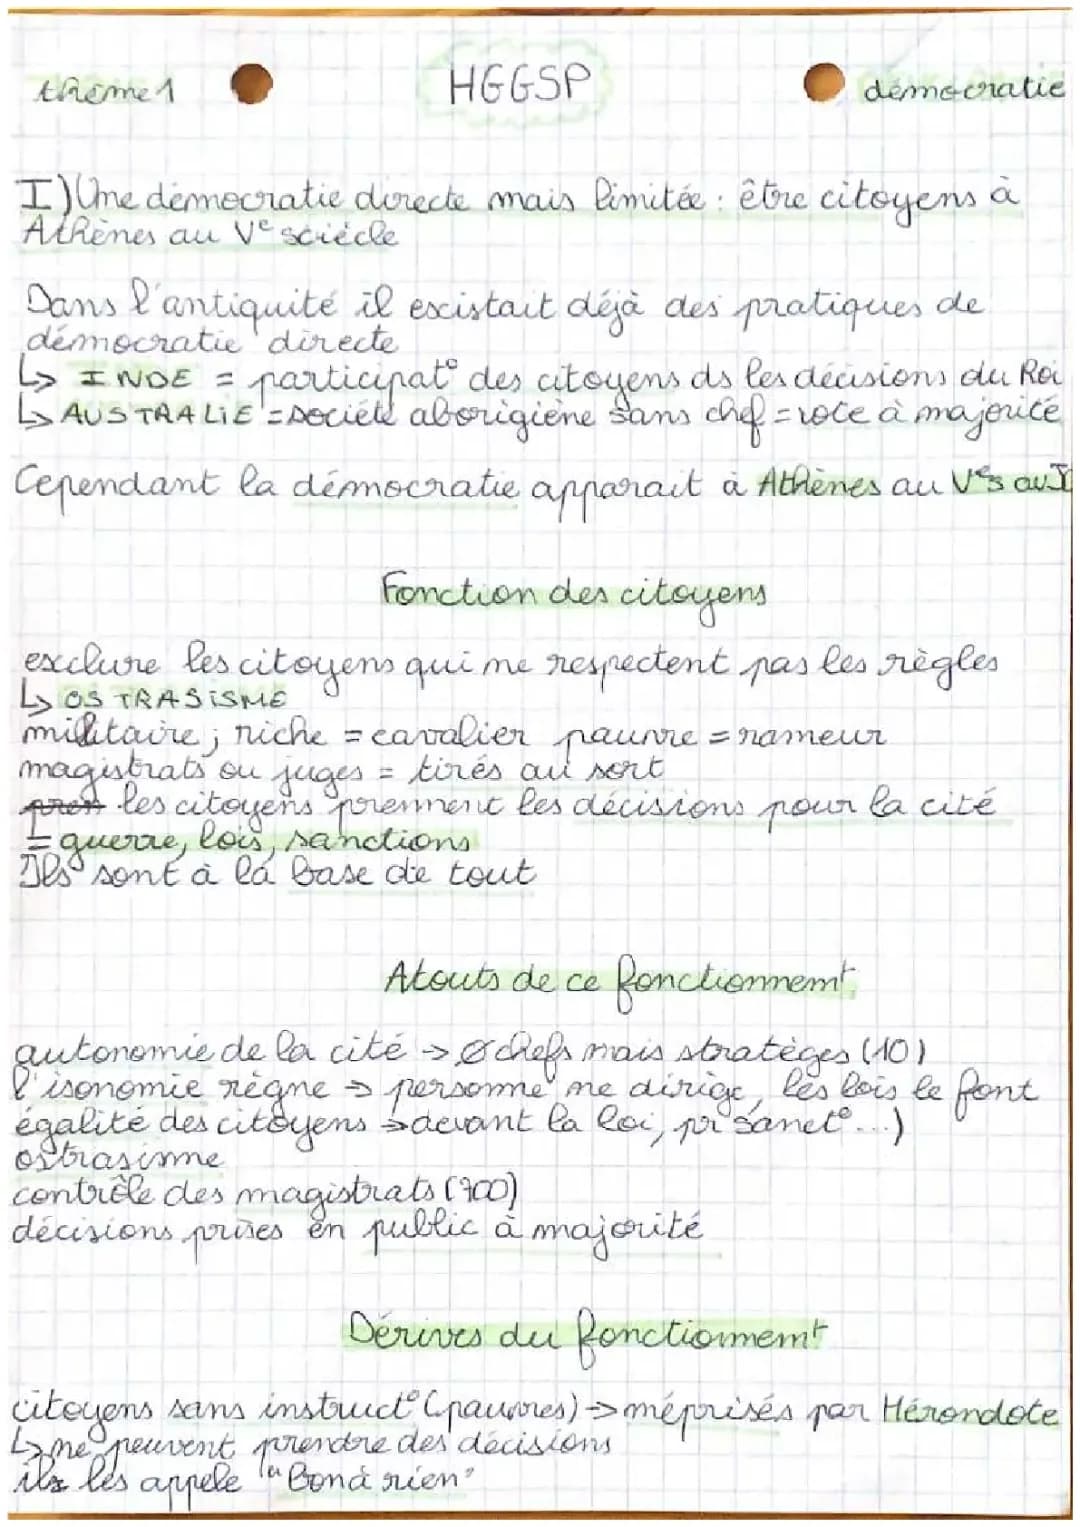 thème 1 HGGSP démocratie
I) Une démocratie directe mais limitée : être citoyens à
Athènes au Ve sciècle
Dans l'antiquité il escistait déjà des pratiques de
démocratie directe
↳ INDE = participat° des citoyens ds les décisions du Roi
↳ AUSTRALIE = société aborigiène sans chef = vote à majorité
Cependant la démocratie apparait à Athènes au Ve s av J
Fonction des citoyens
esclure les citoyens qui ne respectent pas les règles
↳ OSTRASISME
militaire ; riche = cavalier pauvre = rameur
magistrats ou juges = tirés au sort
les citoyens prennent les décisions pour la cité
= guerre, lois, sanctions
Ils sont à la base de tout
Atouts de ce fonctionnemt
autonomie de la cité → Ø chefs mais stratèges (10)
l'isonomie règne → personne ne dirige, les lois le font
égalité des citoyens → devant la loi, pr sanct°...)
ostrasisme
contrôle des magistrats (700)
décisions prises en public à majorité
Dérives du fonctionnemt
citoyens sans instruct° (pauvres) → méprisés par Hérondote
↳ ne peuvent prendre des décisions
les appele "Bon à rien"